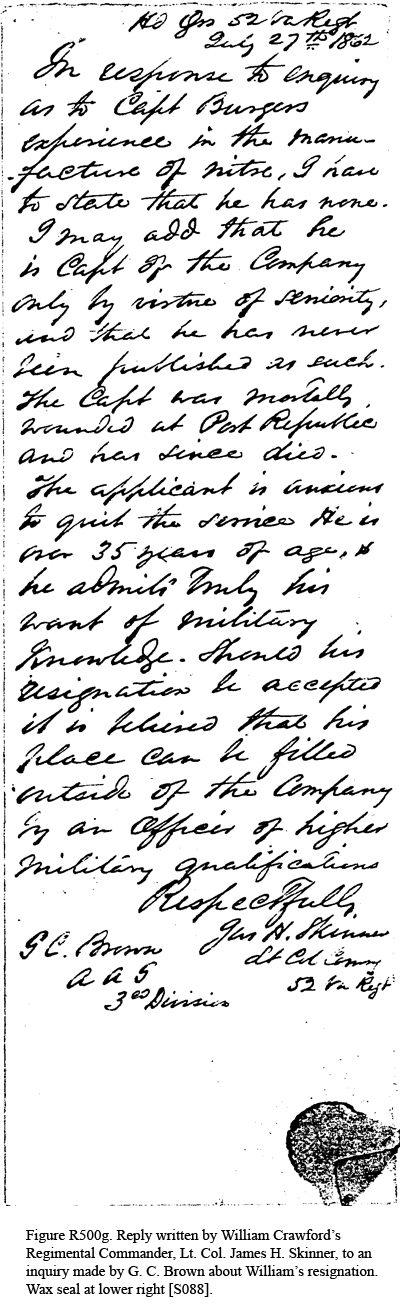 Hd Qrs 52 Va Regt
July 27th 1862
In response to enquiry
as to Capt Burgess
experience in the manu-
facture of nitre, I have
to state that he has none.
I may add that he
is Capt of the Company
only by virtue of seniority,
and that he has never
been published as such.
The Capt was mortally
wounded at Port Republic
and has since died.
The applicant is anxious
to quit the service He is
over 35 years of age, &
he admits truly his
want of military
Knowledge. Should his
resignation be accepted
it is believed that his
place can be filled
outside of the Company
by an Officer of higher
military qualifications
Respectfully
Jas H. Skinner
Lt Col Comg
52 Va Regt
G C. Brown
A A G
3rd Division
Figure R500g. Reply written by William Crawford's
Regimental Commander, Lt. Col. James H. Skinner, to an
inquiry made by G. C. Brown about William's resignation.
Wax seal at lower right [S088].